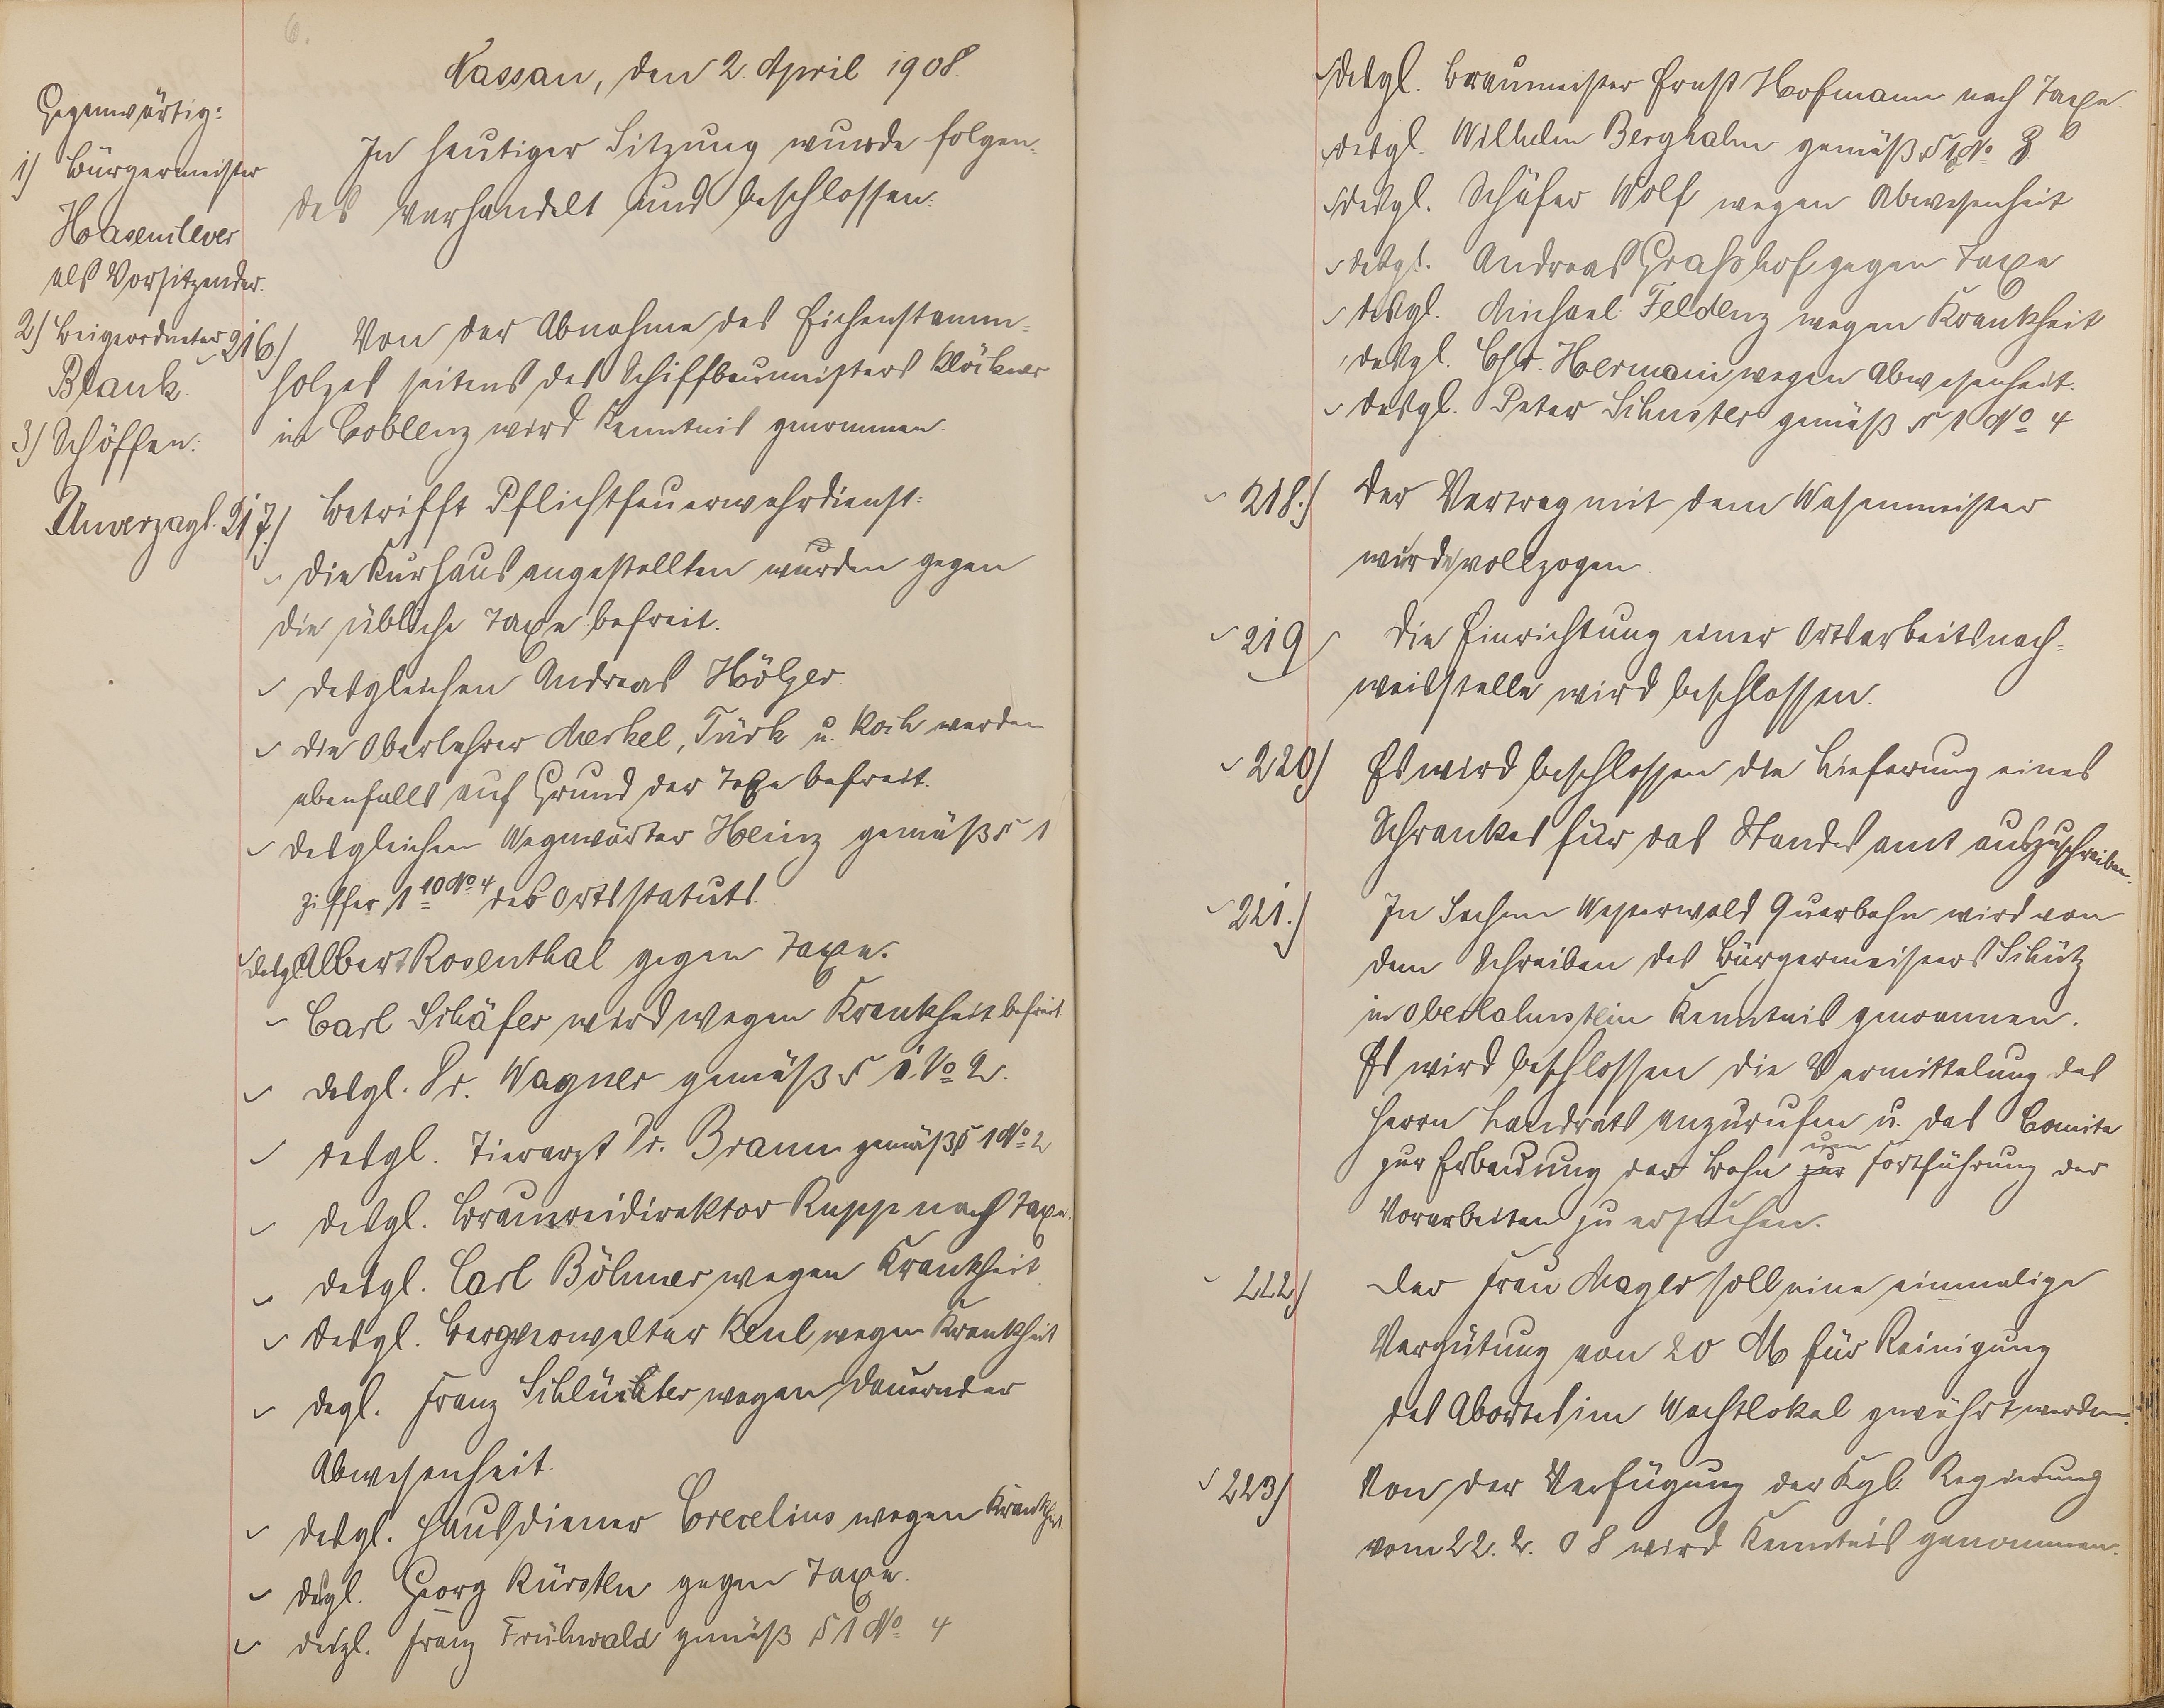 6.
Nassau, den 2. April 1908.
Gegenwärtig:
1) Bürgermeister
Hasenclever
als Vorsitzender.
2) Beigeordneter
Blank
3) Schöffen:
Unverzagt.
In heutiger Sitzung wurde folgen-
des verhandelt und beschlossen:
216.) Von der Abnahme des Eichenstamm-
holzes seitens des Schiffbaumeisters Klöckner
in Coblenz wird Kenntnis genommen.
217.) Betrifft Pflichtfeuerwehrdienst:
Die Kurhausangestellten wurden gegen
die übliche Taxe befreit.
desgleichen Andreas Hölzer
Die Oberlehrer Merkel, Türk u. Koch werden
ebenfalls auf Grund der Taxe befreit.
desgleichen Wegewärter Heinz gemäß § 1
Ziffer 1 10 No 4 des Ortsstatuts.
desgl. Albert Rosenthal gegen Taxe.
Carl Schäfer wird wegen Krankheit befreit.
desgl. Dr. Wagner gemäß § 1 No 2.
desgl. Tierarzt Dr. Braun gemäß § 1 No 2
desgl. Brauereidirektor Rupp nach Taxe.
desgl. Carl Böhmer wegen Krankheit
desgl. Bergverwalter Keul wegen Krankheit
degl. Franz Schlüchter wegen dauernder
Abwesenheit.
desgl. Hausdiener Crecelius wegen Krankheit.
desgl. Georg Kürsten gegen Taxe.
desgl. Franz Frühwald gemäß § 1 No 4
desgl. Braumeister Ernst Hofmann nach Taxe
desgl. Wilhelm Berghahn gemäß § 1 No 3 b
desgl. Schäfer Wolf wegen Abwesenheit
desgl. Andreas Grashof gegen Taxe
desgl. Michael Feldenz wegen Krankheit
desgl. Chr. Hermani wegen Abwesenheit.
desgl. Peter Schuster gemäß § 1 No 4
218.) Der Vertrag mit dem Wasenmeister
wird vollzogen.
219) Die Einrichtung einer Ortsarbeitsnach-
weisstelle wird beschlossen.
220) Es wird beschlossen die Lieferung eines
Schrankes für das Standesamt auszuschreiben.
221.) In Sachen Westerwald Querbahn wird von
dem Schreiben des Bürgermeisters Schütz
in Oberlahnstein Kenntnis genommen.
Es wird beschlossen die Vermittelung des
Herrn Landrats anzurufen u. das Comite
zur Erbauung der Bahn zur um Fortführung der
Vorarbeiten zu ersuchen.
222) Der Frau Mager soll eine einmalige
Vergütung von 20 M für Reinigung
des Abortes im Wachtlokal gewährt werden.
223) Von der Verfügung der Kgl. Regierung
vom 22. 2. 08 wird Kenntnis genommen.